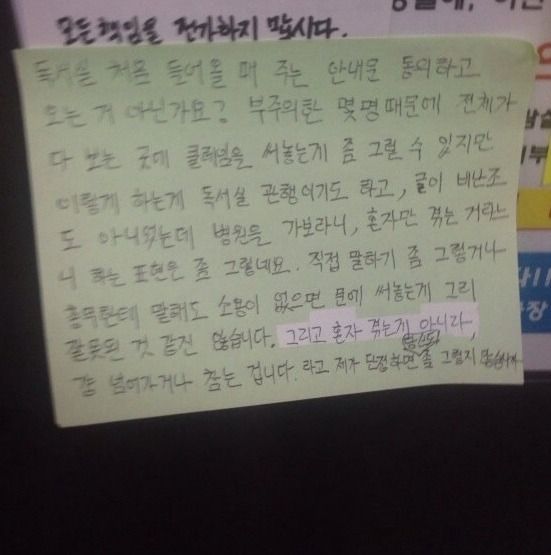 모든책임을 전가하지 맙시다.
독서실 처음 들어올 때 주는 안내문 동의하고
오는 거 아닌가요? 부주의한 몇명때문에 전체가
다 보는 곳에 클레임을 써놓는게 좀 그럴 수 있지만
이렇게 하는게 독서실 관행이기도 하고, 글이 비난조
도 아니었는데 병원을 가보라니, 혼자만 겪는 거라느
니 하는 표현은 좀 그렇네요. 직접 말하기 좀 그렇거나
총무한테 말해도 소용이 없으면 문에 써놓는게 그리
잘못된 것 같진 않습니다. 그리고 혼자 겪는게 아니라,
걍 넘어가거나 참는 겁니다. 라고 제가 단정하면 좀 그렇지